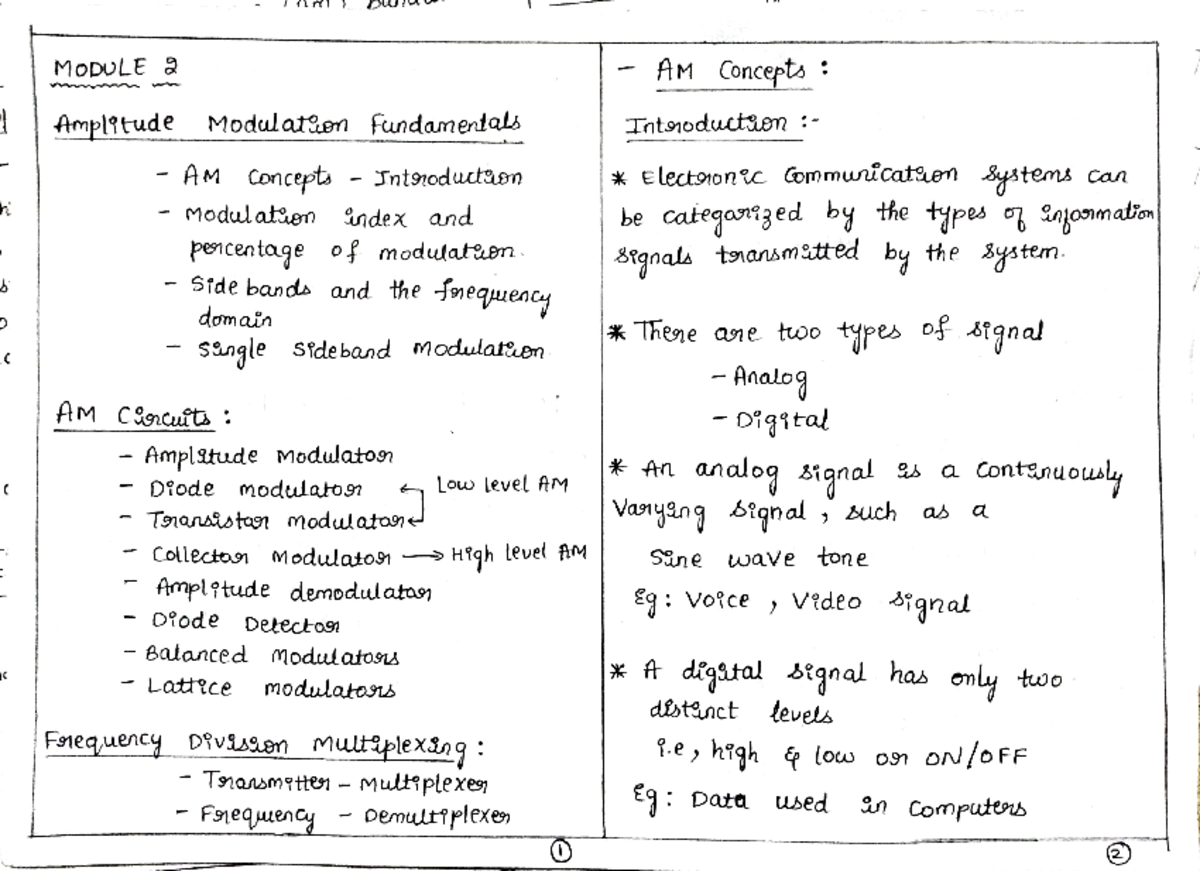 MODULE 2
Amplitude Modulation Fundamentals
- AM Concepts - Introduction
- Modulation index and
percentage of modulation.
- Side bands and the frequency
domain
- Single sideband modulation
AM Circuits :
- Amplitude modulator
- Diode modulator
Low level AM
- Transistor modulator
- Collector modulator → High level AM
- Amplitude demodulator
- Diode Detector
- Balanced modulators
- Lattice modulators
Frequency Division Multiplexing :
- Transmitter - Multiplexer
- Frequency - Demultiplexer
①
- AM Concepts :
Introduction :-
* Electronic Communication systems can
be categorized by the types of information
signals transmitted by the system.
* There are two types of signal
- Analog
- Digital
* An analog signal is a continuously
varying signal, such as a
sine wave tone
Eg : Voice , Video signal
* A digital signal has only two
distinct levels
i.e, high & low or ON/OFF
Eg : Data used in computers
②